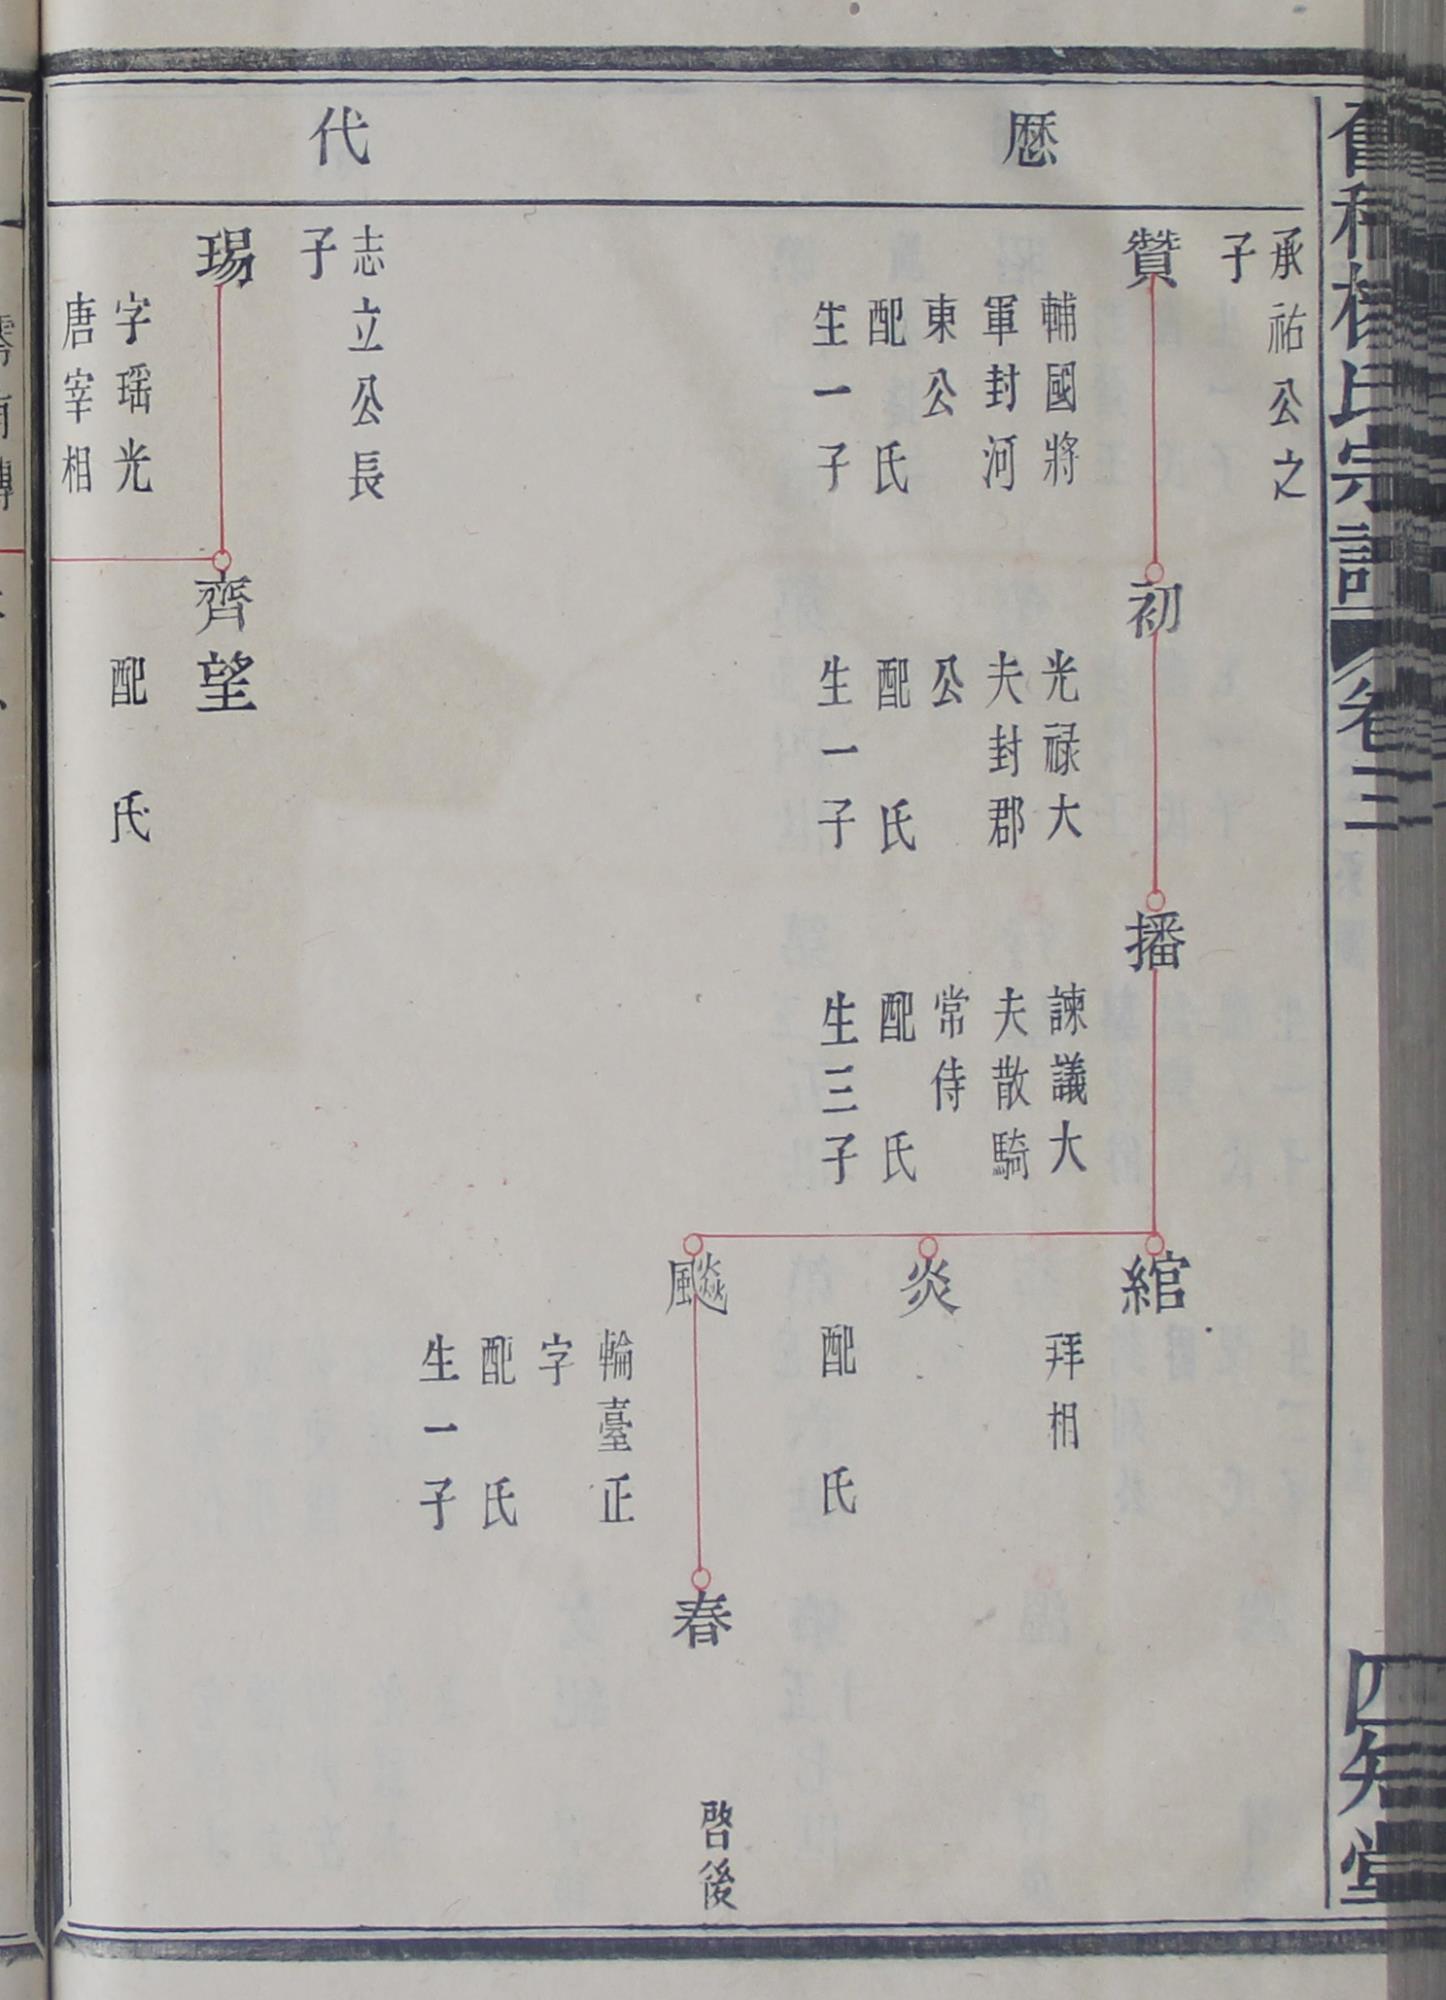 歷代
承祐公之
子
贊
輔國將
軍封河
東公
配氏
生一子
初
光祿大
夫封郡
公
配氏
生一子
播
諫議大
夫散騎
常侍
配氏
生三子
綰
拜相
炎
配氏
飈
輪臺正
字
配氏
生一子
春
啓後
志立公長
子
瑒
字瑶光
唐宰相
齊望
配氏
楊氏宗譜
卷三
四知堂